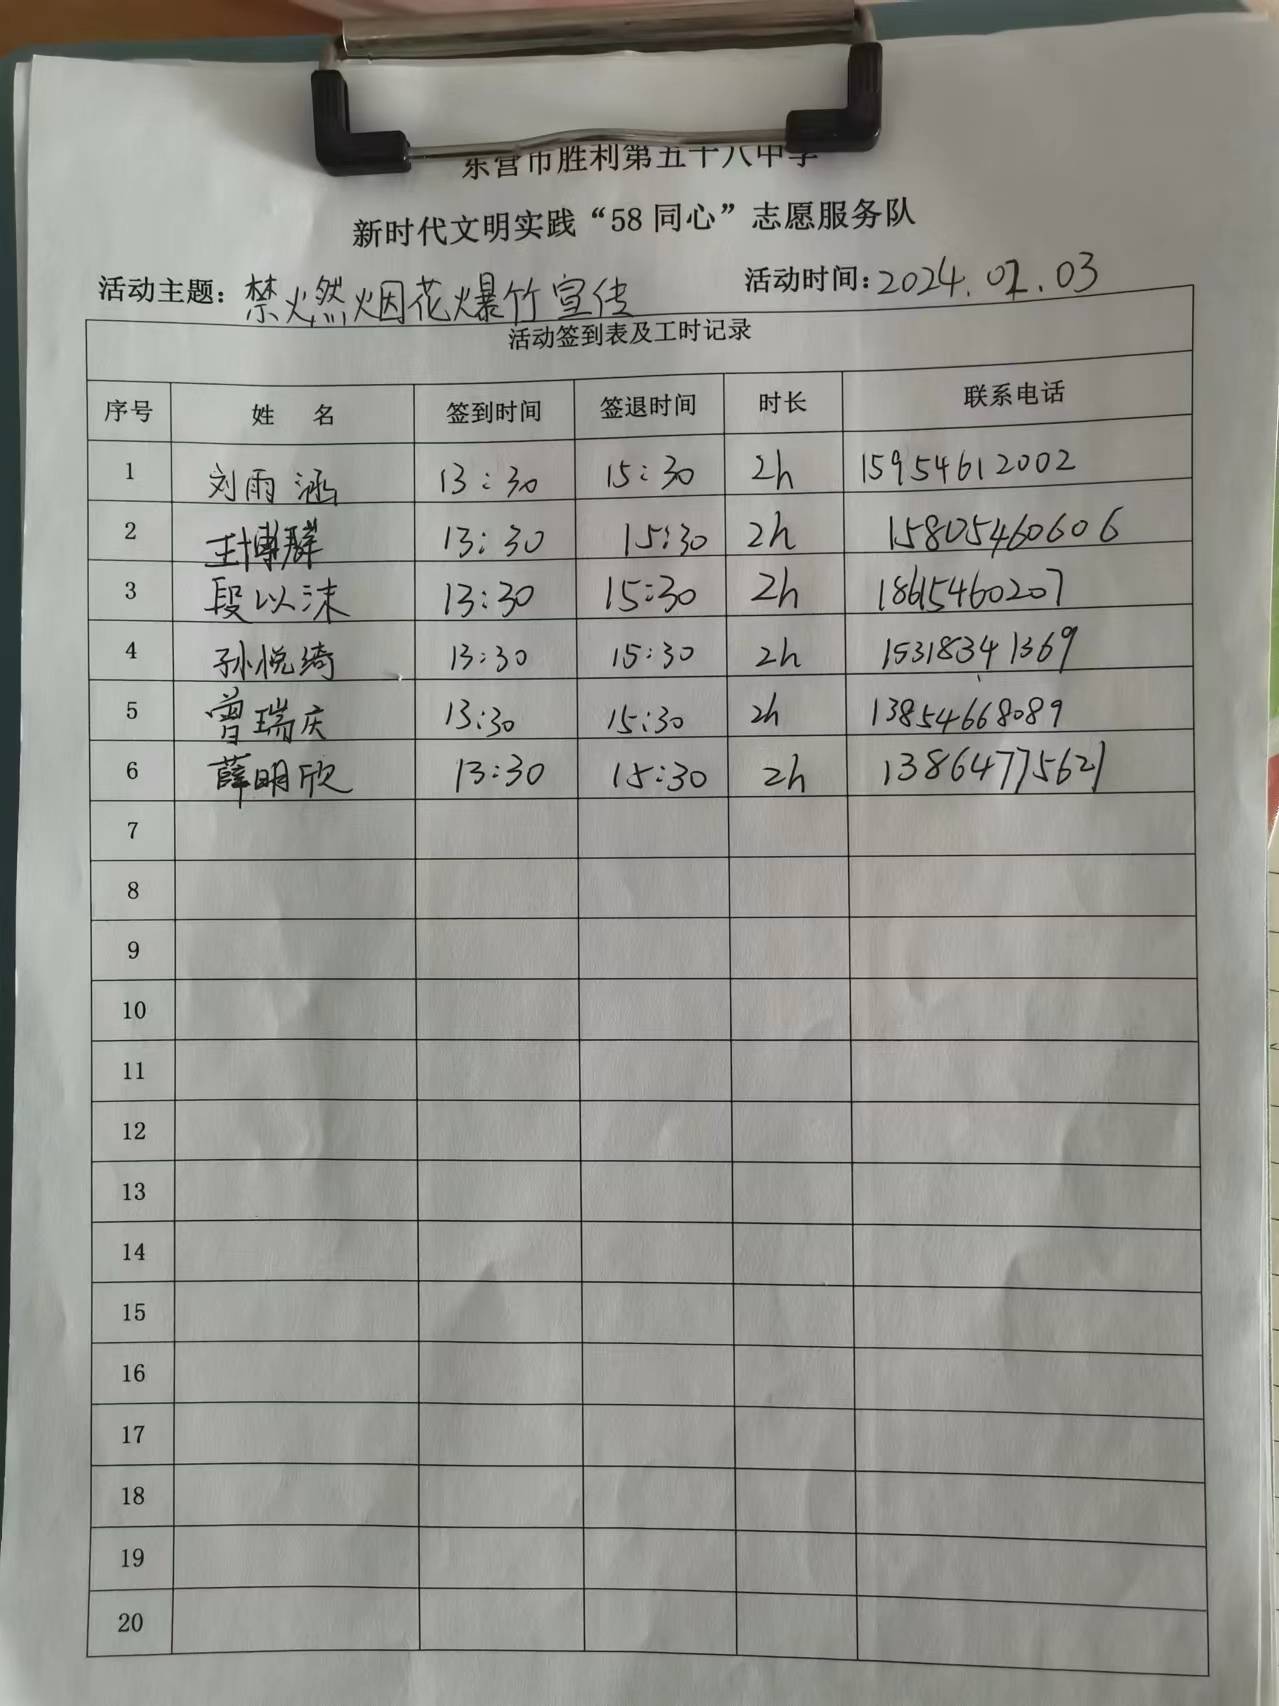 东营市胜利第五十八中学
新时代文明实践“58同心”志愿服务队
活动主题：禁燃烟花爆竹宣传 活动时间：2024.02.03
活动签到表及工时记录
序号 姓 名 签到时间 签退时间 时长 联系电话
1 刘雨涵 13:30 15:30 2h 15954612002
2 王博群 13:30 15:30 2h 15805460606
3 段以沫 13:30 15:30 2h 18615460207
4 孙悦绮 13:30 15:30 2h 15318341369
5 曾瑞庆 13:30 15:30 2h 13854668089
6 薛明欣 13:30 15:30 2h 13864775621
7
8
9
10
11
12
13
14
15
16
17
18
19
20